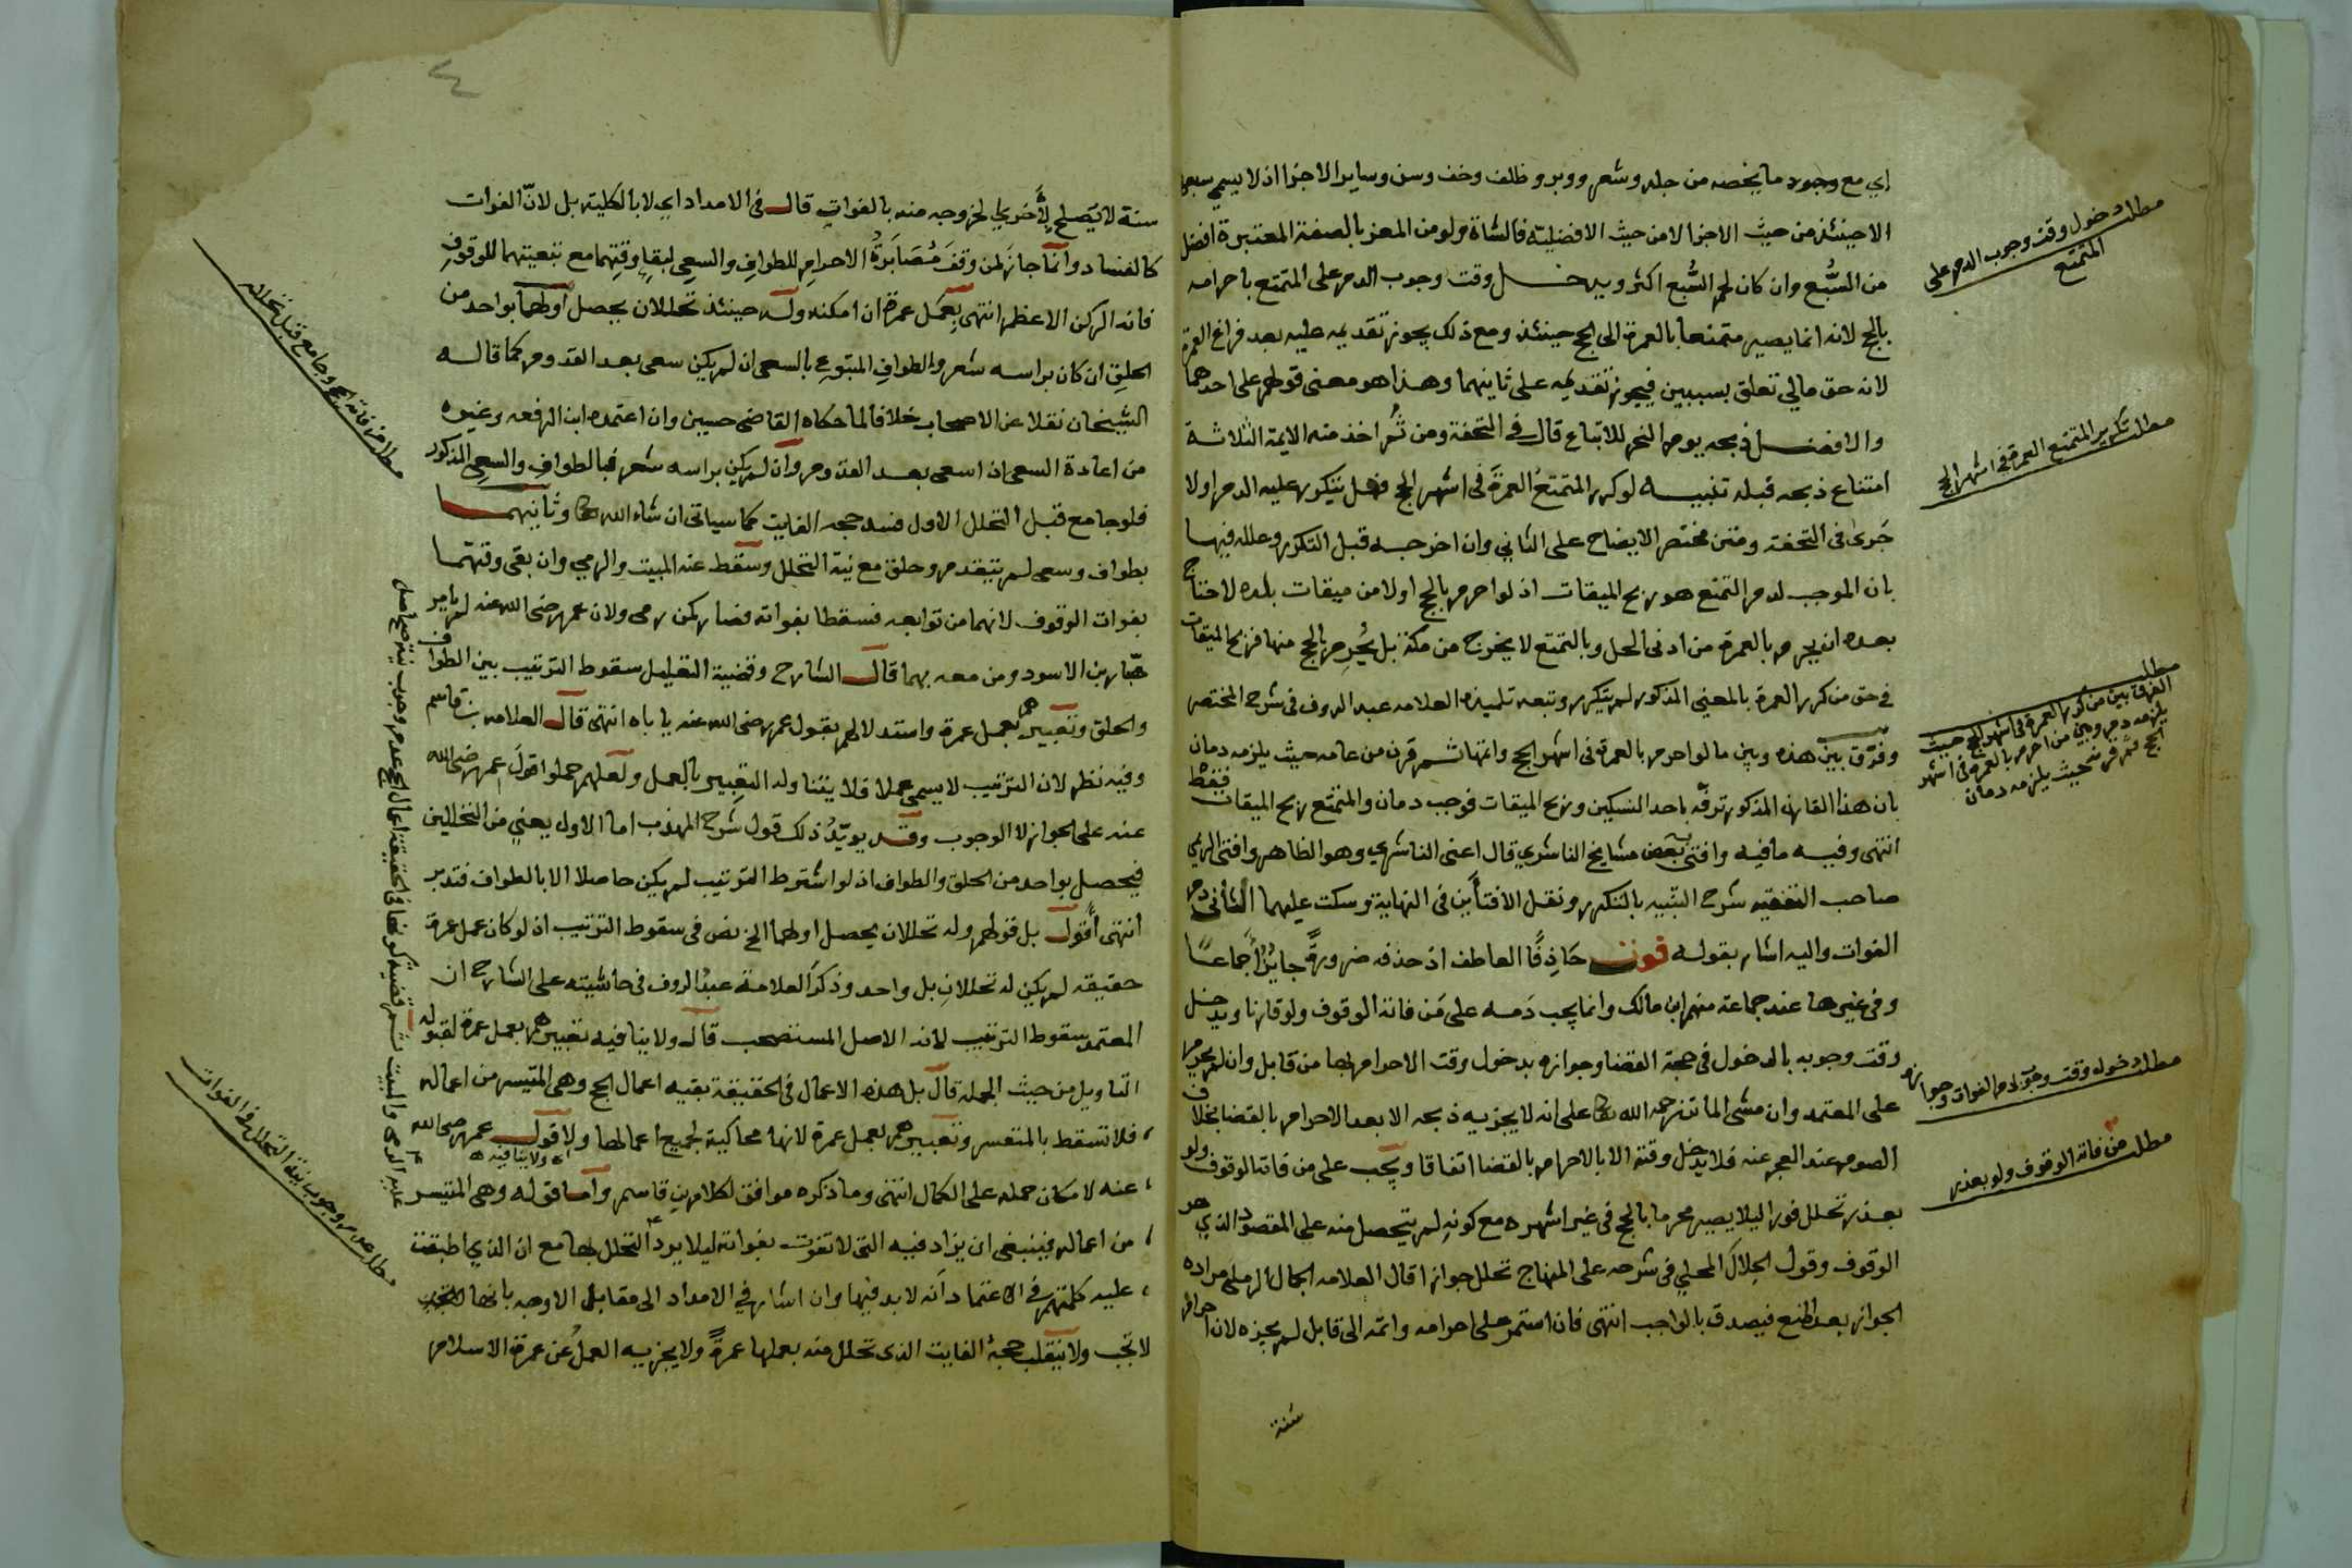 اي مع وجود ما يخصه من جلد وشعر ووبر وظلف وخف وسن وساير الاجزا اذ لا يسمى سبعى
الا حينئذ من حيث الاجزا لا من حيث الافضلية فالشاة ولو من المعز بالصفة المعتبرة افضل
من السُّبع وان كان لحم السُّبع اكثر ويدخل وقت وجوب الدم على المتمتع باحرامه
بالحج لانه انما يصير متمتعا بالعمرة الى الحج حينئذ ومع ذلك يجوز تقديمه عليه بعد فراغ العمرة
لانه حق مالي تعلق بسببين فيجوز تقديمه على ثانيهما وهذا هو معنى قولهم على احدهما
والافضل ذبحه يوم النحر للاتباع قال في التحفة ومن ثُم اخذ منه الايمة الثلاثة
امتناع ذبحه قبله تنبيه لو كرر المتمتعُ العمرةَ في اشهر الحج فهل يتكرر عليه الدم اولا
جَرى في التحفة ومتن مختصر الايضاح على الثاني وان اخرجه قبل التكرر وعلله فيها
بان الموجب لدم التمتع هو ربح الميقات اذ لو احرم بالحج اولا من ميقات بلده لاحتاج
بعده ان يحرم بالعمرة من ادنى الحل وبالتمتع لا يخرج من مكة بل يُحرِم بالحج منها فربح الميقات
في حق من كرر العمرة بالمعنى المذكور لم يتكرر وتبعه تلميذه العلامه عبد الروف في شرح المختصر
وفرّق بين هذه وبين ما لو احرم بالعمرة في اشهر الحج واتمها ثم قرن من عامه حيث يلزمه دمان
بان هذا القارن المذكور ترفّه باحد النسكين وربح الميقات فوجب دمان والمتمتع ربح الميقات فقط
انتهى وفيه ما فيه وافتى بعض مشايخ الناشري قال اعنى الناشري وهو الظاهر وافتى الريمي
صاحب التفقيه شرح التنبيه بالتكرر ونقل الافتأين في النهاية وسكت عليهما الثاني دم
الفوات واليه اشار بقوله فوت حَاذِفًا العاطف اذ حذفه ضرورةً جايزٌ اجماعًا
وفي غيرها عند جماعة منهم ابن مالك وانما يجب دَمه على مَن فاته الوقوف ولو قارنا ويدخل
وقت وجوبه بالدخول في حجة القضا وجوازه بدخول وقت الاحرام بها من قابل وان لم يحرم
على المعتمد وان مشى الماتن رحمه الله تعالى على انه لا يجزيه ذبحه الا بعد الاحرام بالقضا بخلاف
الصوم عند العجز عنه فلا يدخل وقته الا بالاحرام بالقضا اتفاقا ويجب على من فاته الوقوف ولو
بعذر تحلل فورا ليلا يصير محرما بالحج في غير اشهره مع كونه لم يتحصل منه على المقصود الذي هو
الوقوف وقول الجلال المحلي في شرحه على المنهاج تحلل جوازا قال العلامه الجمال الرملي مراده
الجواز بعد المنع فيصدق بالواجب انتهى فان استمر على احرامه واتمه الى قابل لم يجزه لان احرام
سنة
مطلب دخول وقت وجوب الدم على
المتمتع
مطلب تكرير المتمتع العمرة في اشهر الحج
مطلب
الفرق بين من كرر العمرة في اشهر الحج حيث
يلزمه دم وبين من احرم بالعمرة في اشهر
الحج ثم قرن حيث يلزمه دمان
مطلب دخول وقت وجوب دم الفوات وجوازه
مطلب من فاته الوقوف ولو بعذر
٤
سنة لا يَصلح لِأُخرى لخروجه منه بالفوات قال في الامداد اي لا بالكلية بل لانّ الفوات
كالفساد وانما جاز لمن وقفَ مُصَابَرةُ الاحرام للطواف والسعي لبقاءِ وقتِهما مع تبعيتهما للوقوفِ
فانه الركن الاعظم انتهى بِعَمَل عمرة ان امكنه وله حينئذ تحللان يحصل أولهما بواحد من
الحلق ان كان براسه شعر والطوافِ المتبوعِ بالسعى ان لم يكن سعى بعد القدوم كما قاله
الشيخان نقلا عن الاصحاب خلافا لما حكاه القاضي حسين وان اعتمده ابن الرفعه وغيره
من اعادة السعى ان اسعى بعد القدوم وان لم يكن براسه شعر فبالطواف والسعي المذكور
فلو جامع قبل التحلل الاول فسد حجه الفايت كما سياتي ان شاء الله تعالى وثانيهما
بطواف وسعى لم يتقدم وحلق مع نية التحلل وسقط عنه المبيت والرمي وان بقى وقتهما
بفوات الوقوف لانهما من توابعه فسقطا بفواته فصار كمن رمى ولان عمر رضى الله عنه لم يامر
هبّار بن الاسود ومن معه بهما قال الشارح وقضية التعليل سقوط الترتيب بين الطواف
والحلق وتعبيرهم بعمل عمرة واستدلالهم بقول عمر رضى الله عنه يا باه انتهى قال العلامه بن قاسم
وفيه نظر لان الترتيب لا يسمى عملا فلا يتناوله التعبير بالعمل ولعلهم حملوا قولَ عمر رضى الله
عنه على الجواز لا الوجوب وقد يويّدُ ذلك قول شرح المهذب اما الاول يعني من التحللين
فيحصل بواحد من الحلق والطواف اذ لو اشترط الترتيب لم يكن حاصلا الا بالطواف فتدبر
انتهى أقول بل قولهم وله تحللان يحصل اولهما الخ نص في سقوط الترتيب اذ لو كان عمل عمرة
حقيقه لم يكن له تحللان بل واحد وذكرَ العلامة عبدُ الروف في حاشيته على الشارح ان
المعتمد سقوط الترتيب لانه الاصل المستصحب قال ولا ينافيه تعبيرهم بعمل عمرة لقبوله
التاويل من حيث الجمله قال بل هذه الاعمال في الحقيقة بقيه اعمال الحج وهى المتيسر من اعماله
فلا تسقط بالمتعسر وتعبيرهم بعمل عمرة لانها محاكية لجميع اعمالها ولا قول عمر رضى الله
اي ولا ينافيه
عنه لامكان حمله على الكمال انتهى وما ذكره موافق لكلام بن قاسم واما قوله وهى المتيسر
من اعماله فينبغى ان يزاد فيه التى لا تفوت بفواته ليلا يرد التحلل بها مع ان الذي اطبقت
عليه كلمتهم في الاعتماد أنه لا بد فيها وان اشار في الامداد الى مقابل الاوجه بانها
لا تجب ولا تنقلب حجةُ الفايت الذى تحلل منه بعملها عمرةً ولا يجزيه العملُ عن عمرة الاسلام
مطلب من فاته الحج وجامع قبل تحلله
مطلب عدم وجوب نية التحلل في الفوات